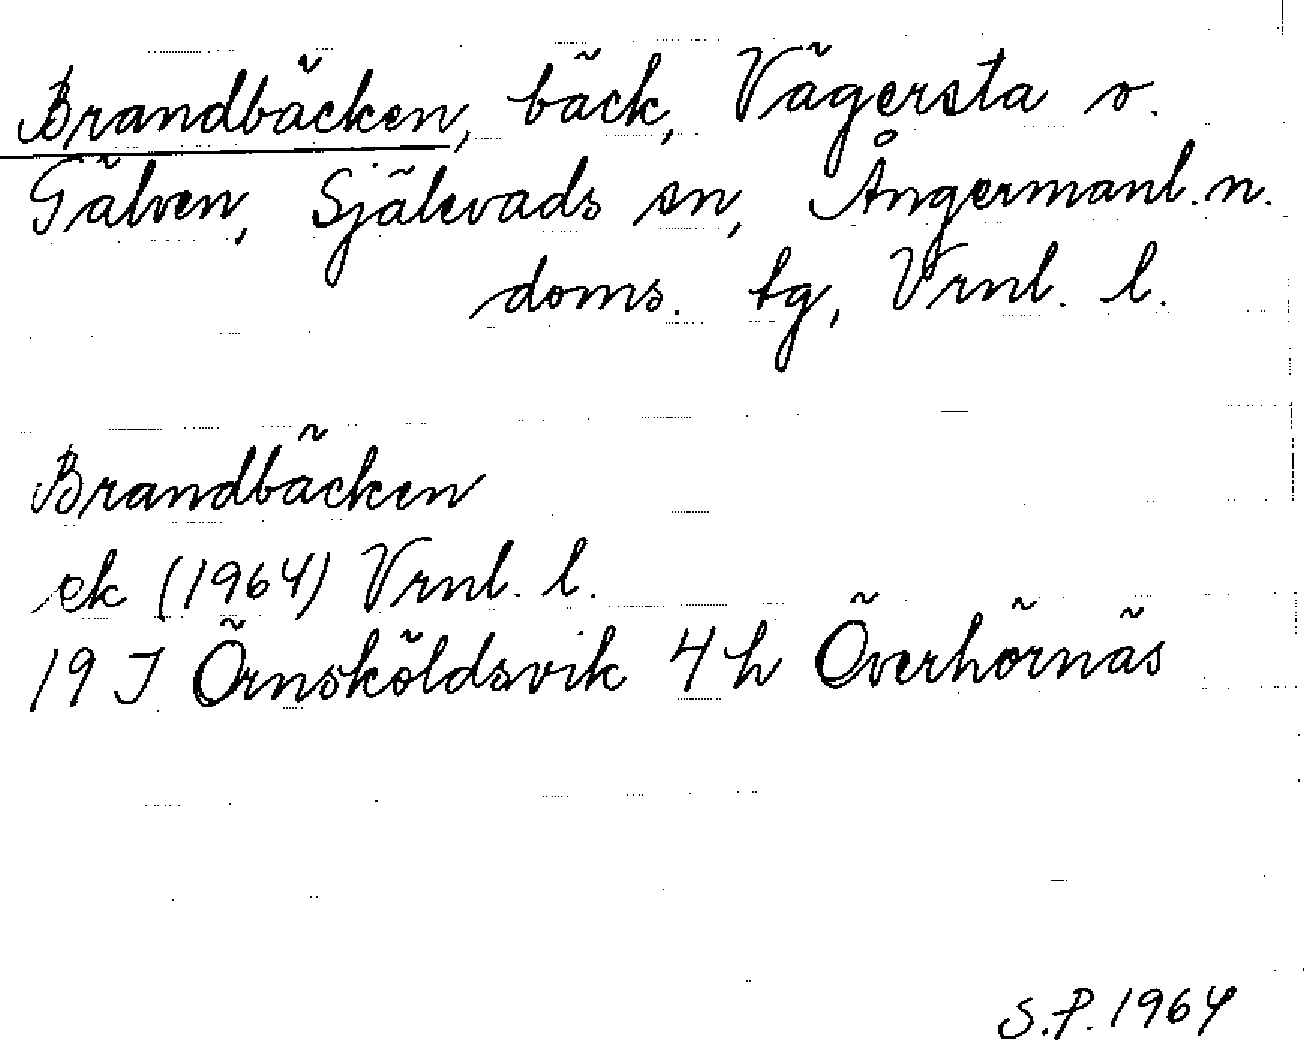 Brandbäcken, bäck, Vägersta o.
Gälven, Själevads sn, Ångermanl. n.
doms. tg, Vrnl. l.
Brandbäcken
ek (1964) Vrnl. l.
19 J Örnsköldsvik 4 h Överhörnäs
S.P. 1964